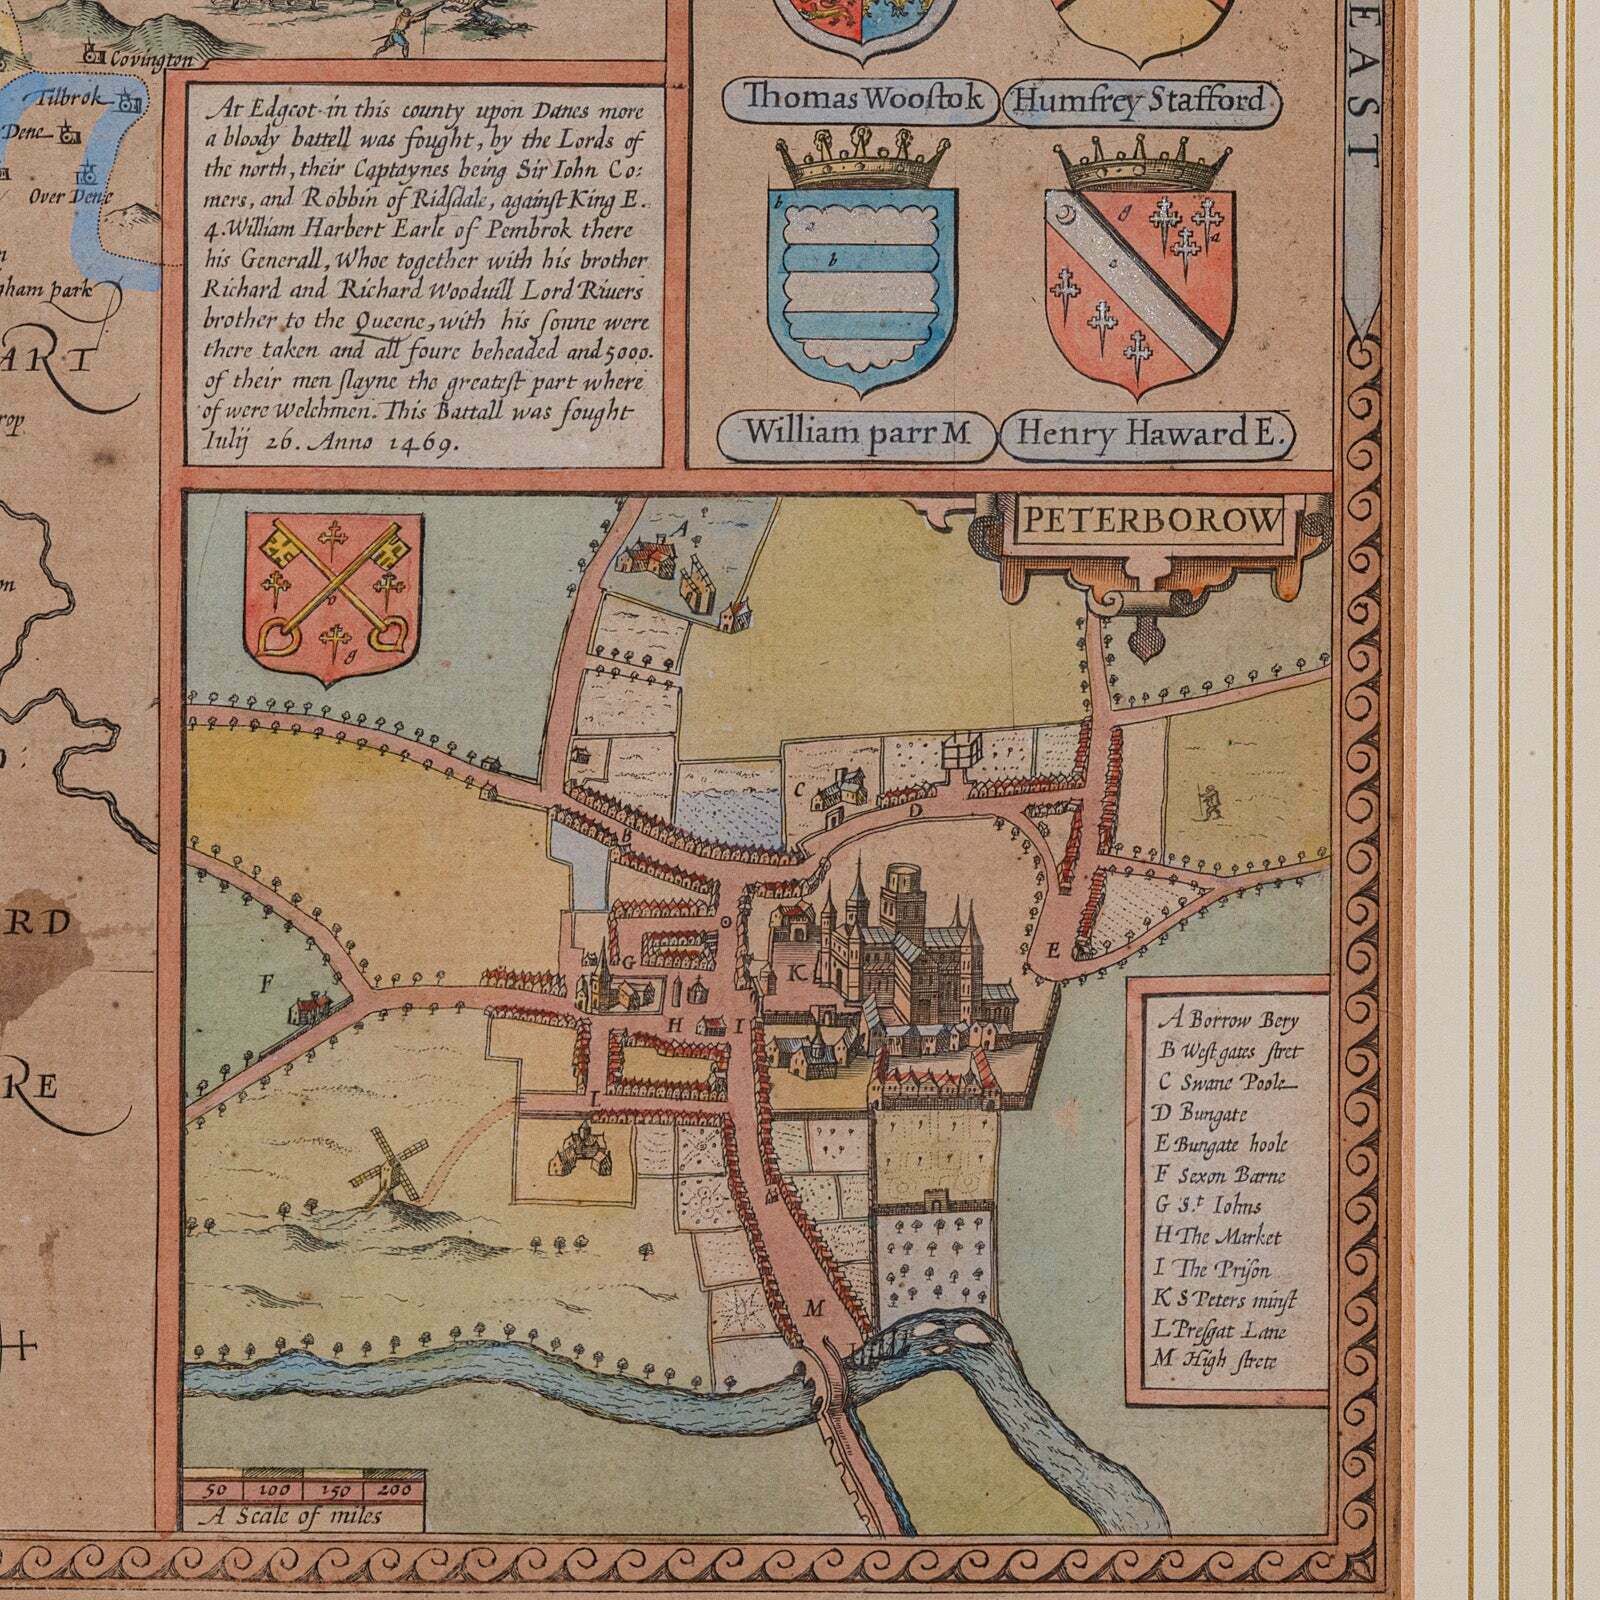 EAST
Covington
Tilbrok
Dene
Over Dene
ham park
ART
rop
RD
RE
At Edgcot in this county upon Danes more
a bloody battell was fought, by the Lords of
the north, their Captaynes being Sir Iohn Co:
mers, and Robbin of Ridſdale, againſt King E.
4. William Harbert Earle of Pembrok there
his Generall, Whoe together with his brother
Richard and Richard Wooduill Lord Riuers
brother to the Queene, with his ſonne were
there taken and all foure beheaded and 5000.
of their men ſlayne the greateſt part where
of were Welchmen. This Battall was fought
Iulij 26. Anno 1469.
Thomas Wooſtok
Humfrey Stafford
b
a
b
g
a
a
William parr M
Henry Haward E.
PETERBOROW
g
A
B
C
D
E
F
G
H
I
K
L
M
A Borrow Bery
B Weſt gates ſtret
C Swane Poole
D Bungate
E Bungate hoole
F Sexon Barne
G S.t Iohns
H The Market
I The Priſon
K S Peters minſt
L Preſgat Lane
M High ſtrete
50 100 150 200
A Scale of miles